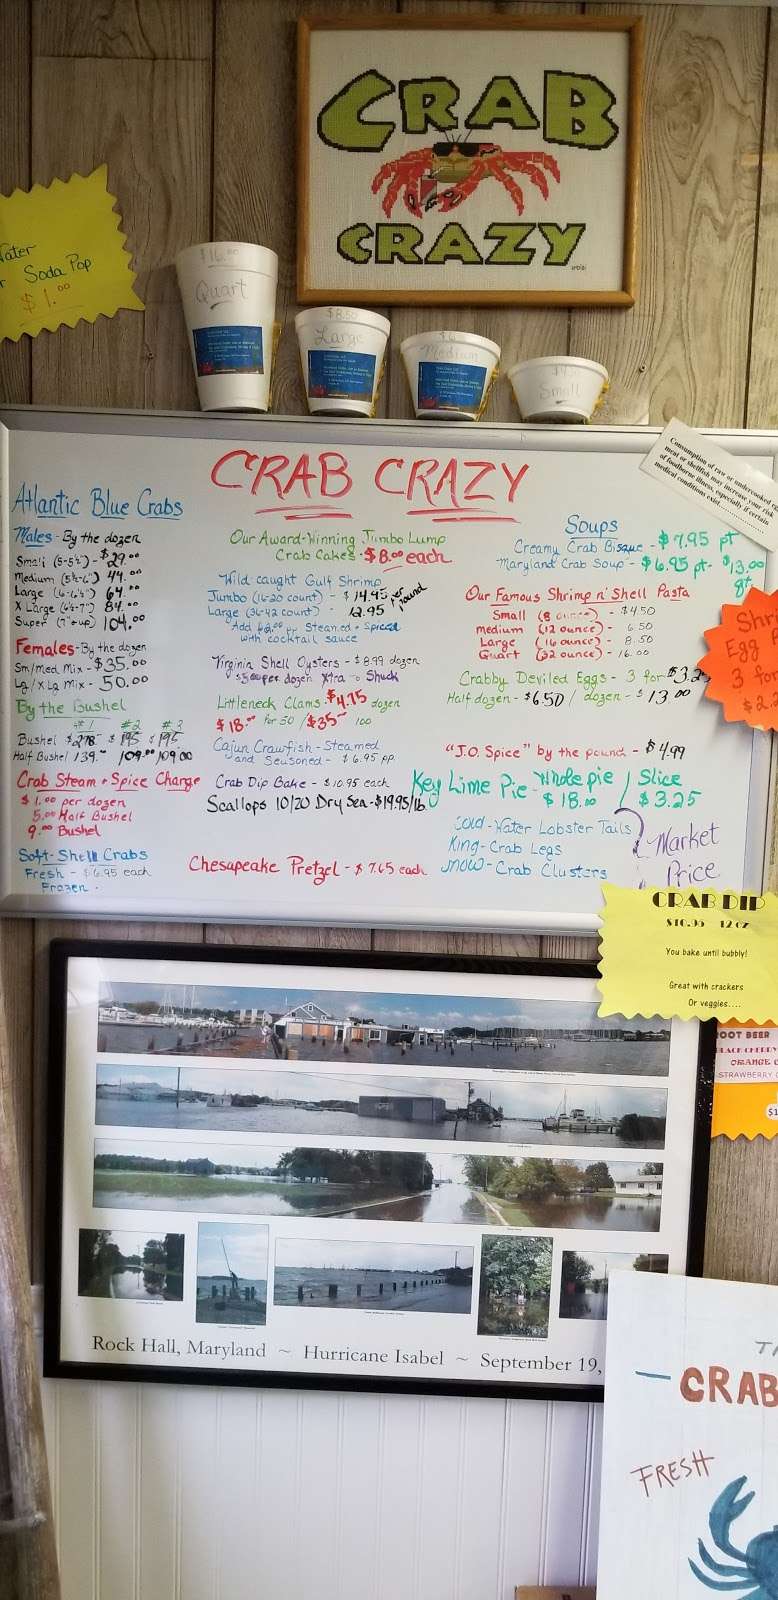 CRAB
CRAZY
Water
Soda Pop
$1.00
$16.00
Quart
$8.50
Large
$6
Medium
$4.50
Small
CRAB CRAZY
Consumption of raw or undercooked
meat or shellfish may increase your risk
of foodborne illness, especially if certain
medical conditions exist
Atlantic Blue Crabs
Males - By the dozen
Small (5-5½") - $29.00
Medium (5½-6") 49.00
Large (6-6½") 64.00
X Large (6½-7") 84.00
Super (7"+up) 104.00
Females - By the dozen
Sm/Med Mix - $35.00
Lg/XLg Mix - 50.00
By the Bushel
#1 #2 #3
Bushel $278 $195 $195
Half Bushel 139.- 109.00 109.00
Crab Steam + Spice Charge
$1.00 per dozen
5.00 Half Bushel
9.00 Bushel
Soft-Shell Crabs
Fresh - $6.95 each
Frozen -
Our Award-Winning Jumbo Lump
Crab Cakes - $8.00 each
Wild caught Gulf Shrimp
Jumbo (16-20 count) - $14.95 per pound
Large (36-42 count) - 12.95
Add $2.00 Steamed + Spiced
with cocktail sauce
Virginia Shell Oysters - $8.99 dozen
per dozen Xtra to Shuck
Littleneck Clams - $4.75 dozen
$18.00 for 50 / $35- 100
Cajun Crawfish - Steamed
and Seasoned - $6.95 pp.
Crab Dip Bake - $10.95 each
Scallops 10/20 Dry Sea - $19.95/lb
Chesapeake Pretzel - $7.65 each
Soups
Creamy Crab Bisque - $7.95 pt
Maryland Crab Soup - $6.95 pt - $13.00 qt
Our Famous Shrimp n' Shell Pasta
Small (8 ounce) - $4.50
medium (12 ounce) - 6.50
Large (16 ounce) - 8.50
Quart (32 ounce) - 16.00
Crabby Deviled Eggs - 3 for $3.2
Half dozen - $6.50 / dozen - $13.00
"J.O. Spice" by the pound - $4.99
Key Lime Pie - Whole pie $18.00 / Slice $3.25
Cold-Water Lobster Tails
King-Crab Legs
Snow-Crab Clusters
Market
Price
Shri
Egg
3 for
$2.2
CRAB DIP
$10.95 12 oz
You bake until bubbly!
Great with crackers
Or veggies....
ROOT BEER
BLACK CHERRY
ORANGE
STRAWBERRY
$1
Rock Hall, Maryland ~ Hurricane Isabel ~ September 19,
CRAB
FRESH